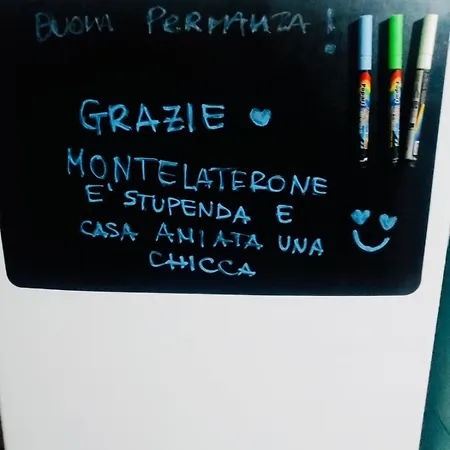 BUONA PERMANZA!
GRAZIE
MONTELATERONE
E' STUPENDA E
CASA AMIATA UNA
CHICCA